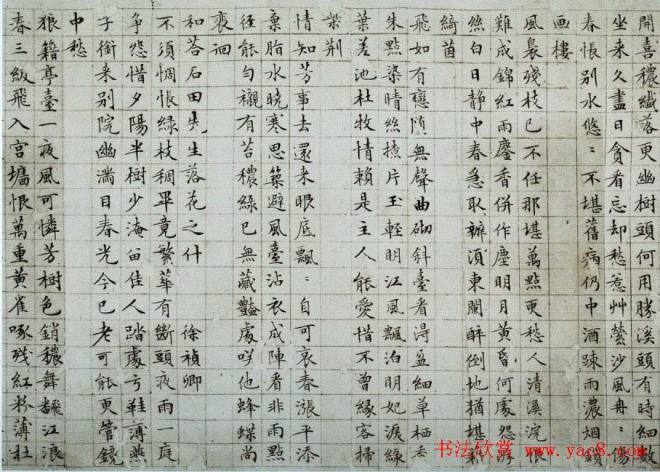 開喜穠纖落更幽樹頭何用勝溪明有時細數
坐来久盡日貪看忘却愁惹艸縈沙風冉冉傷
春悵別水悠悠不堪舊病仍中酒踈雨濃烟鎖
画樓
風裊殘枝已不任那堪萬點更愁人清溪浣
難成錦紅雨麈香併作塵明月黃昏何處怨游
絲白日静中春急取辦須東闌醉倒地猶堪
綺茵
飛如有戀随無聲曲砌斜臺看得盈細草栖
朱點染晴絲撩片玉輕明江風飄泊明妃淚綠
葉差池杜牧情賴是主人能愛惜不曾緣客掃
柴荆
情知芳事去還来眼底飄飄自可哀春漲平添
棄脂水曉寒思築避風臺沾衣成陣看非雨點
徑能勻襯有苔穠綠已無藏豔處笑他蜂蝶尚
裵徊
和荅石田先生落花之什　徐禎卿
不須惆悵綠枝稠畢竟繁華有斷頭夜雨一庭
爭怨惜夕陽半樹少淹留佳人踏處弓鞋薄燕
子銜来別院幽滿目春光今已老可能更管鏡
中愁
狼籍亭臺一夜風可憐芳樹色銷穠舞翻江浪
春三級飛入宫墻恨萬重黃雀啄殘紅粉薄杜
书法欣赏 www.yac8.com